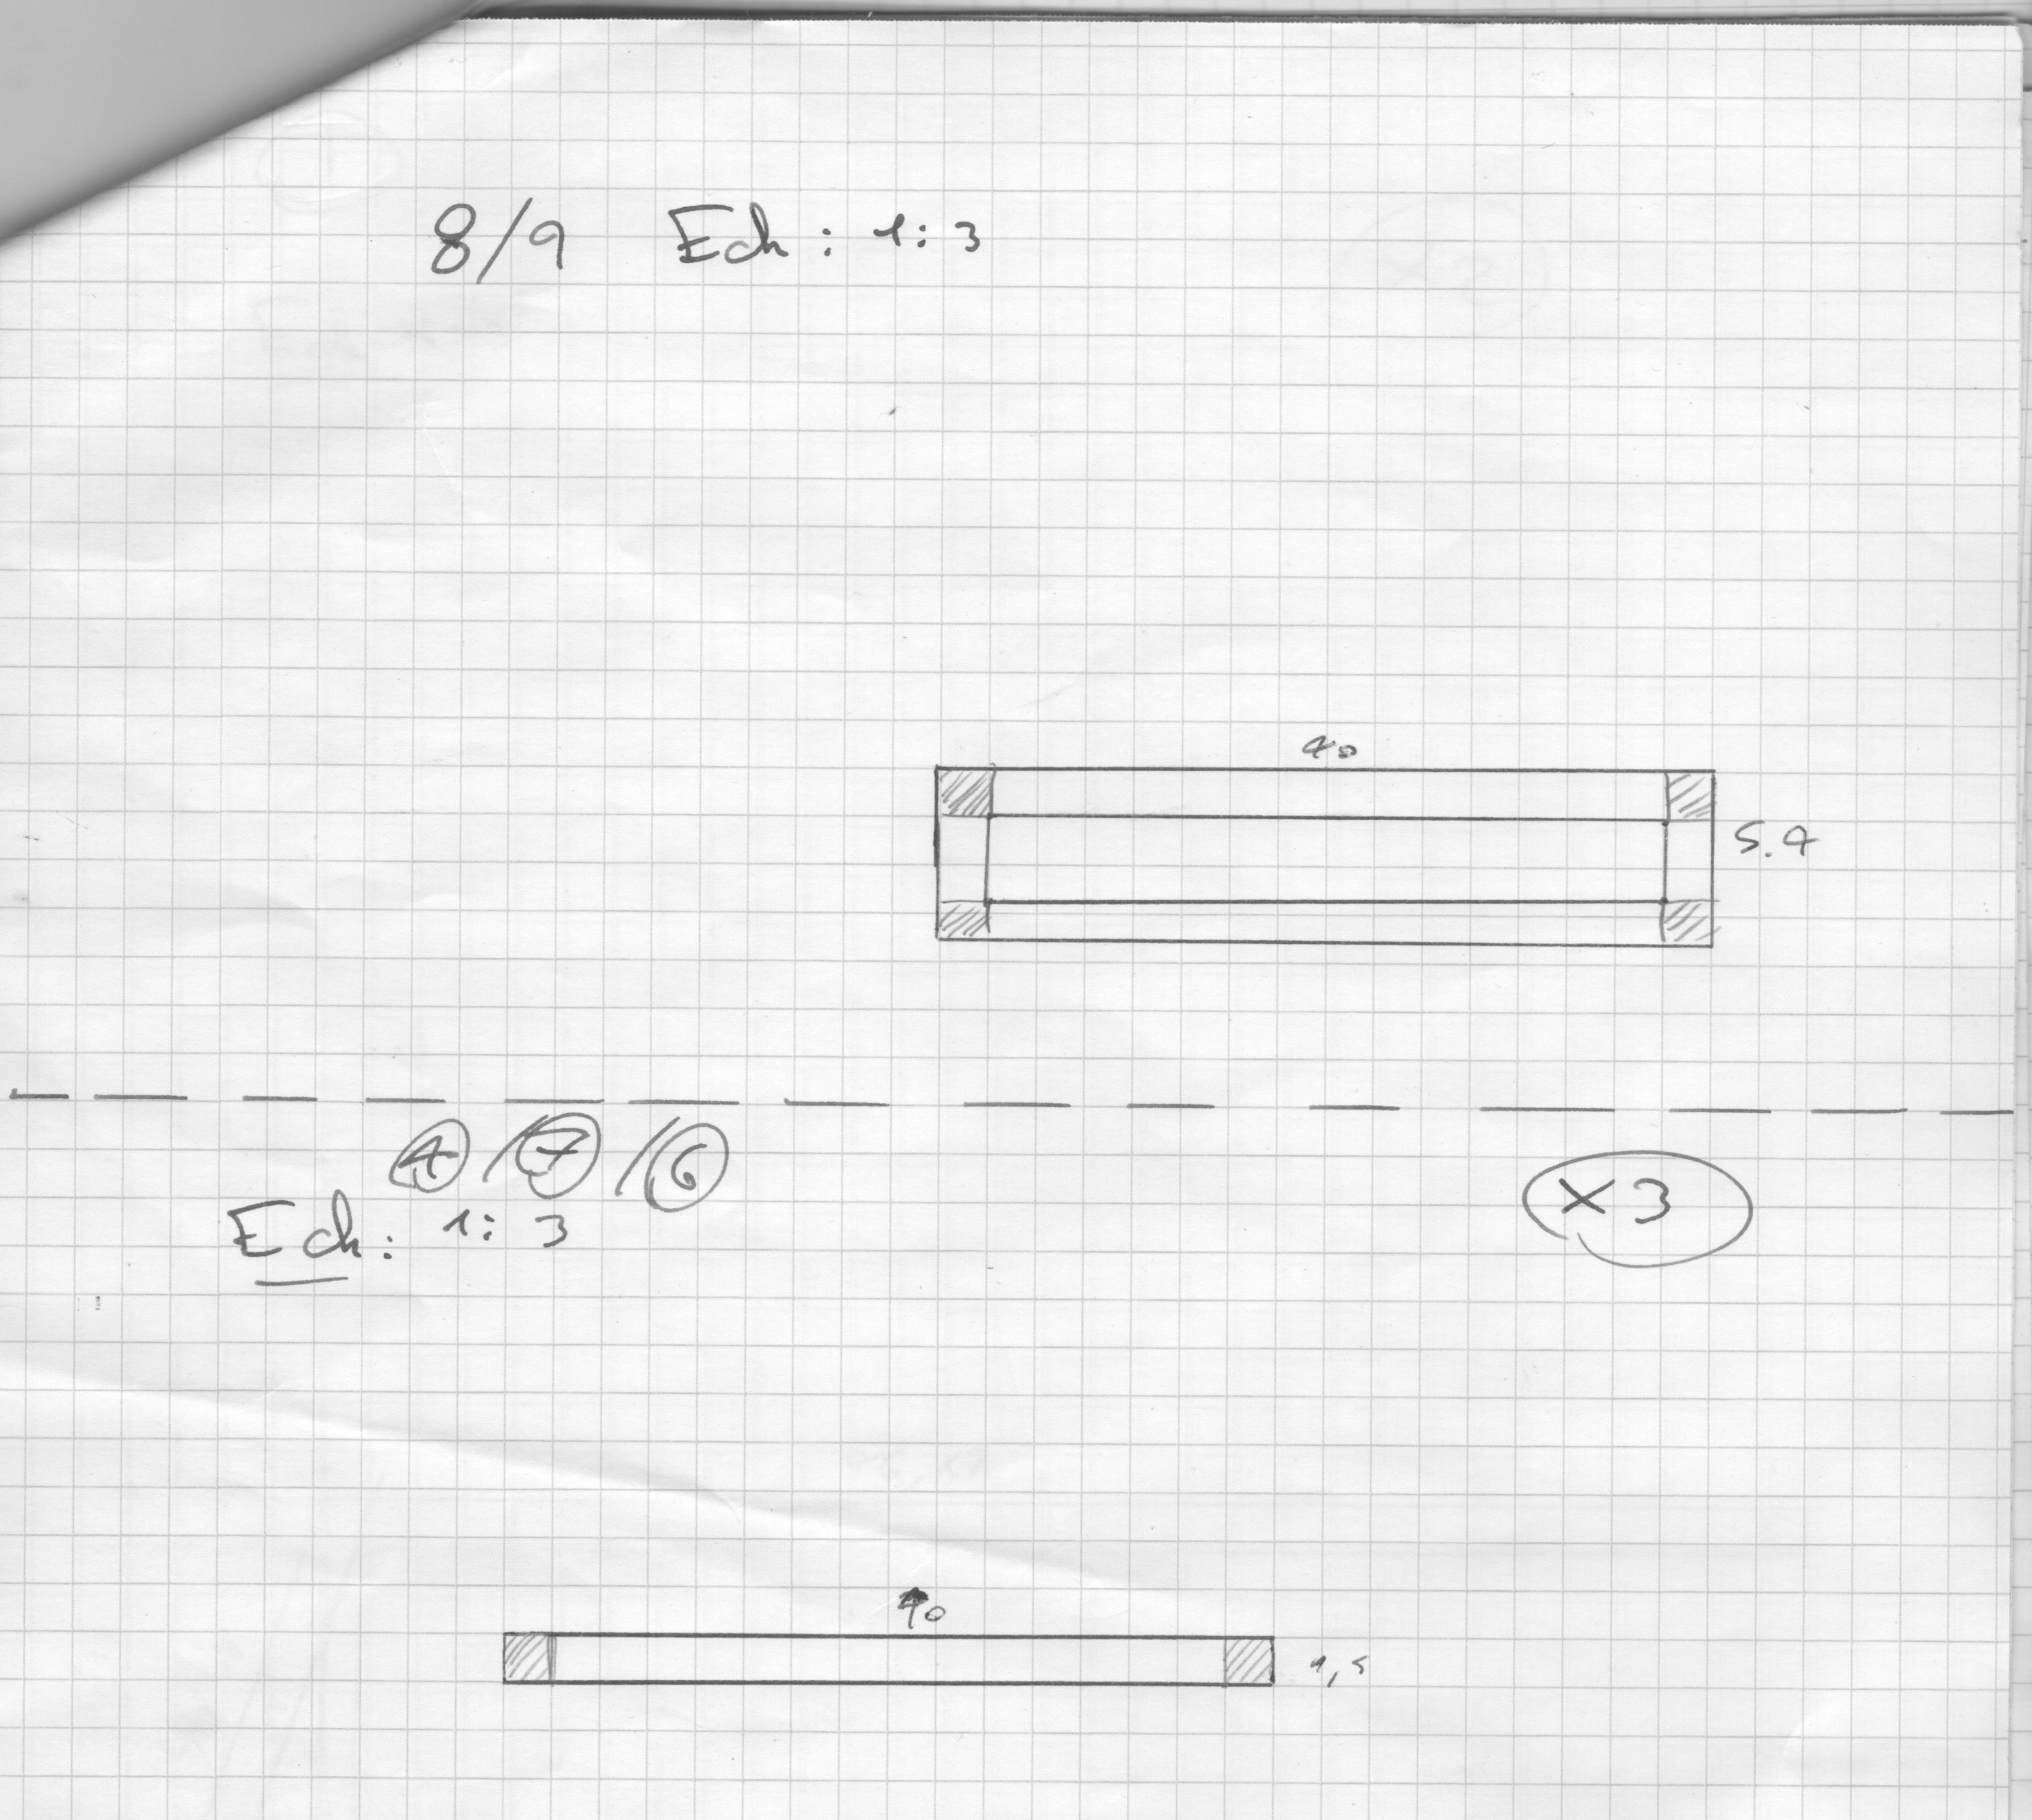 8/9 Ech : 1:3
40
5.4
4 / 7 / 6
x 3
Ech: 1:3
40
1,5